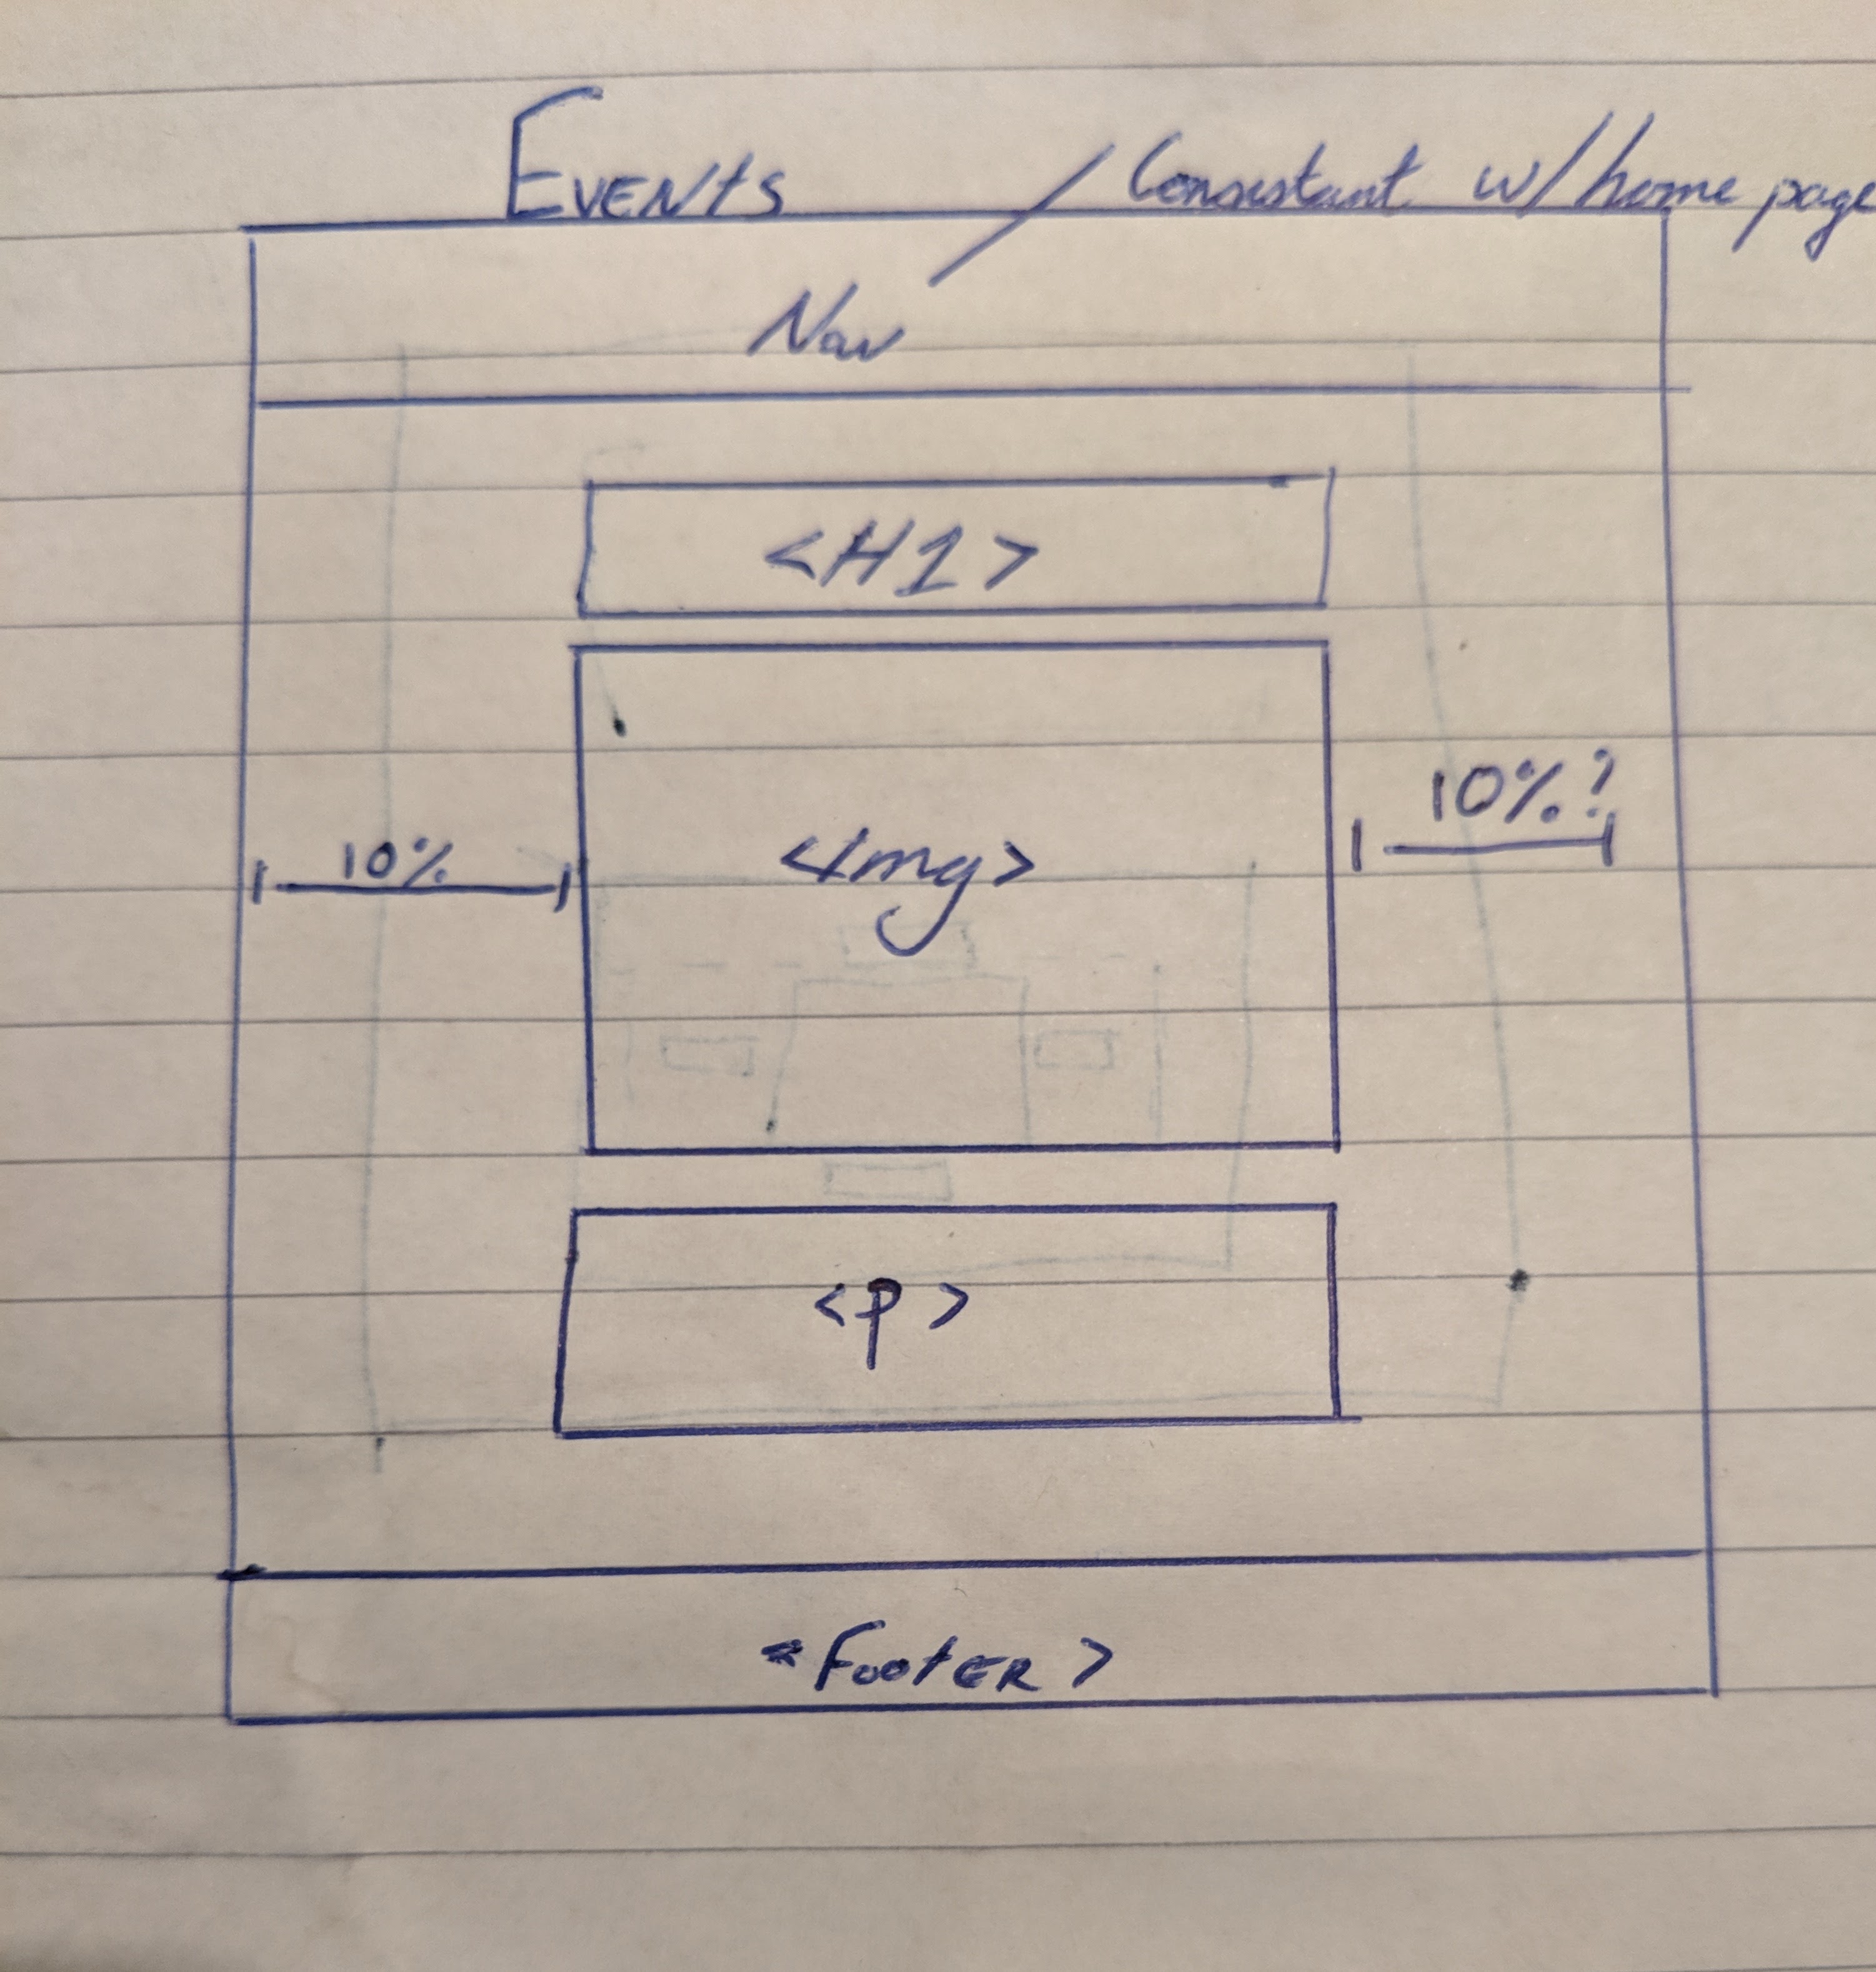 Events
Consistant w/ home page
Nav
<H1>
10%?
10%
<Img>
<P>
<Footer>